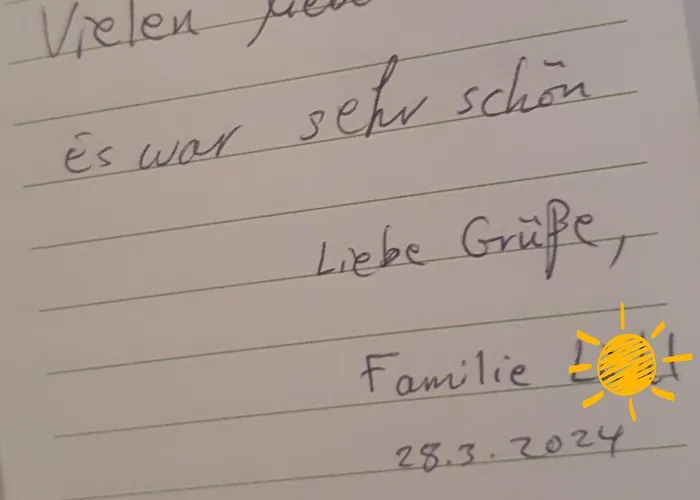 Vielen
Es war sehr schön
Liebe Grüße,
Familie
28.3.2024